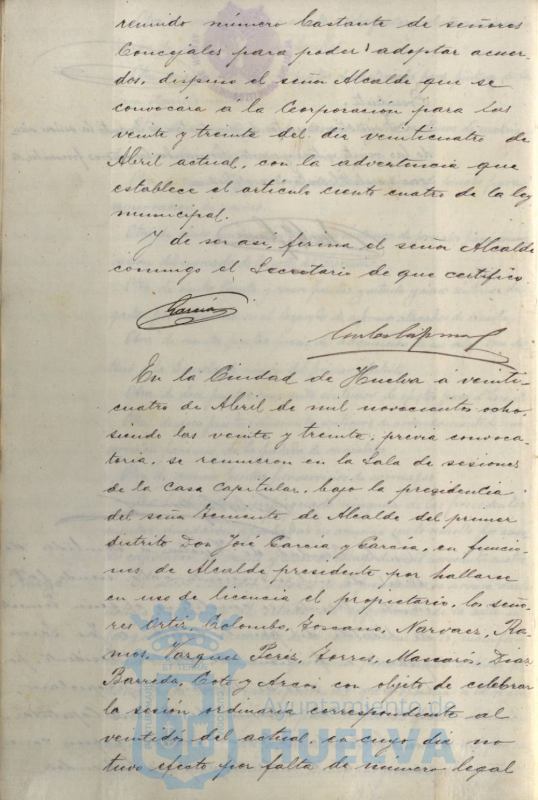 reunido número bastante de señores
Concejales para poder adoptar acuer-
dos, dispuso el señor Alcalde que se
convocára á la Corporación para las
veinte y treinta del dia veinticuatro de
Abril actual, con la advertencia que
establece el artículo ciento cuatro de la ley
municipal.
Y de ser asi, firma el señor Alcalde
conmigo el Secretario de que certifico.
Garcia
En la Ciudad de Huelva á veinti-
cuatro de Abril de mil novecientos ocho
siendo las veinte y treinta, previa convoca-
toria, se reunieron en la Sala de sesiones
de la Casa Capitular, bajo la presidencia
del señor Teniente de Alcalde del primer
distrito Don José García y García, en funcio-
nes de Alcalde presidente por hallarse
en uso de licencia el propietario, los seño-
res Ortiz, Colombo, Toscano, Narvaez, Ra-
mos, Vazquez Perez, Torres, Mascarós, Diaz
Barrida, Coto y Arcos con objeto de celebrar
la sesión ordinaria correspondiente al
ventidos del actual, en cuyo dia no
tuvo efecto por falta de número legal
Ayuntamiento de
HUELVA